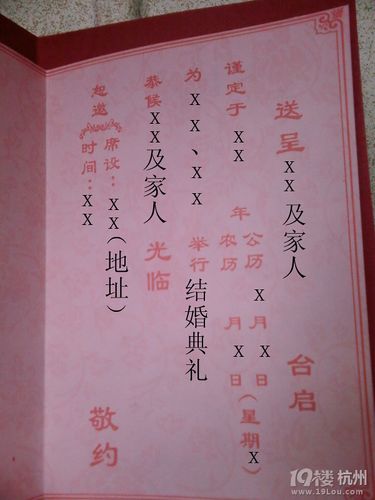 送呈 xx 及家人 台启
谨定于 xx 年 公历 x 月 x 日(星期x
农历 月 x 日
为 xx、xx 举行 结婚典礼
恭候 xx及家人 光临
席设：xx(地址)
时间：xx
恕邀
敬约
19楼 杭州
www.19lou.com